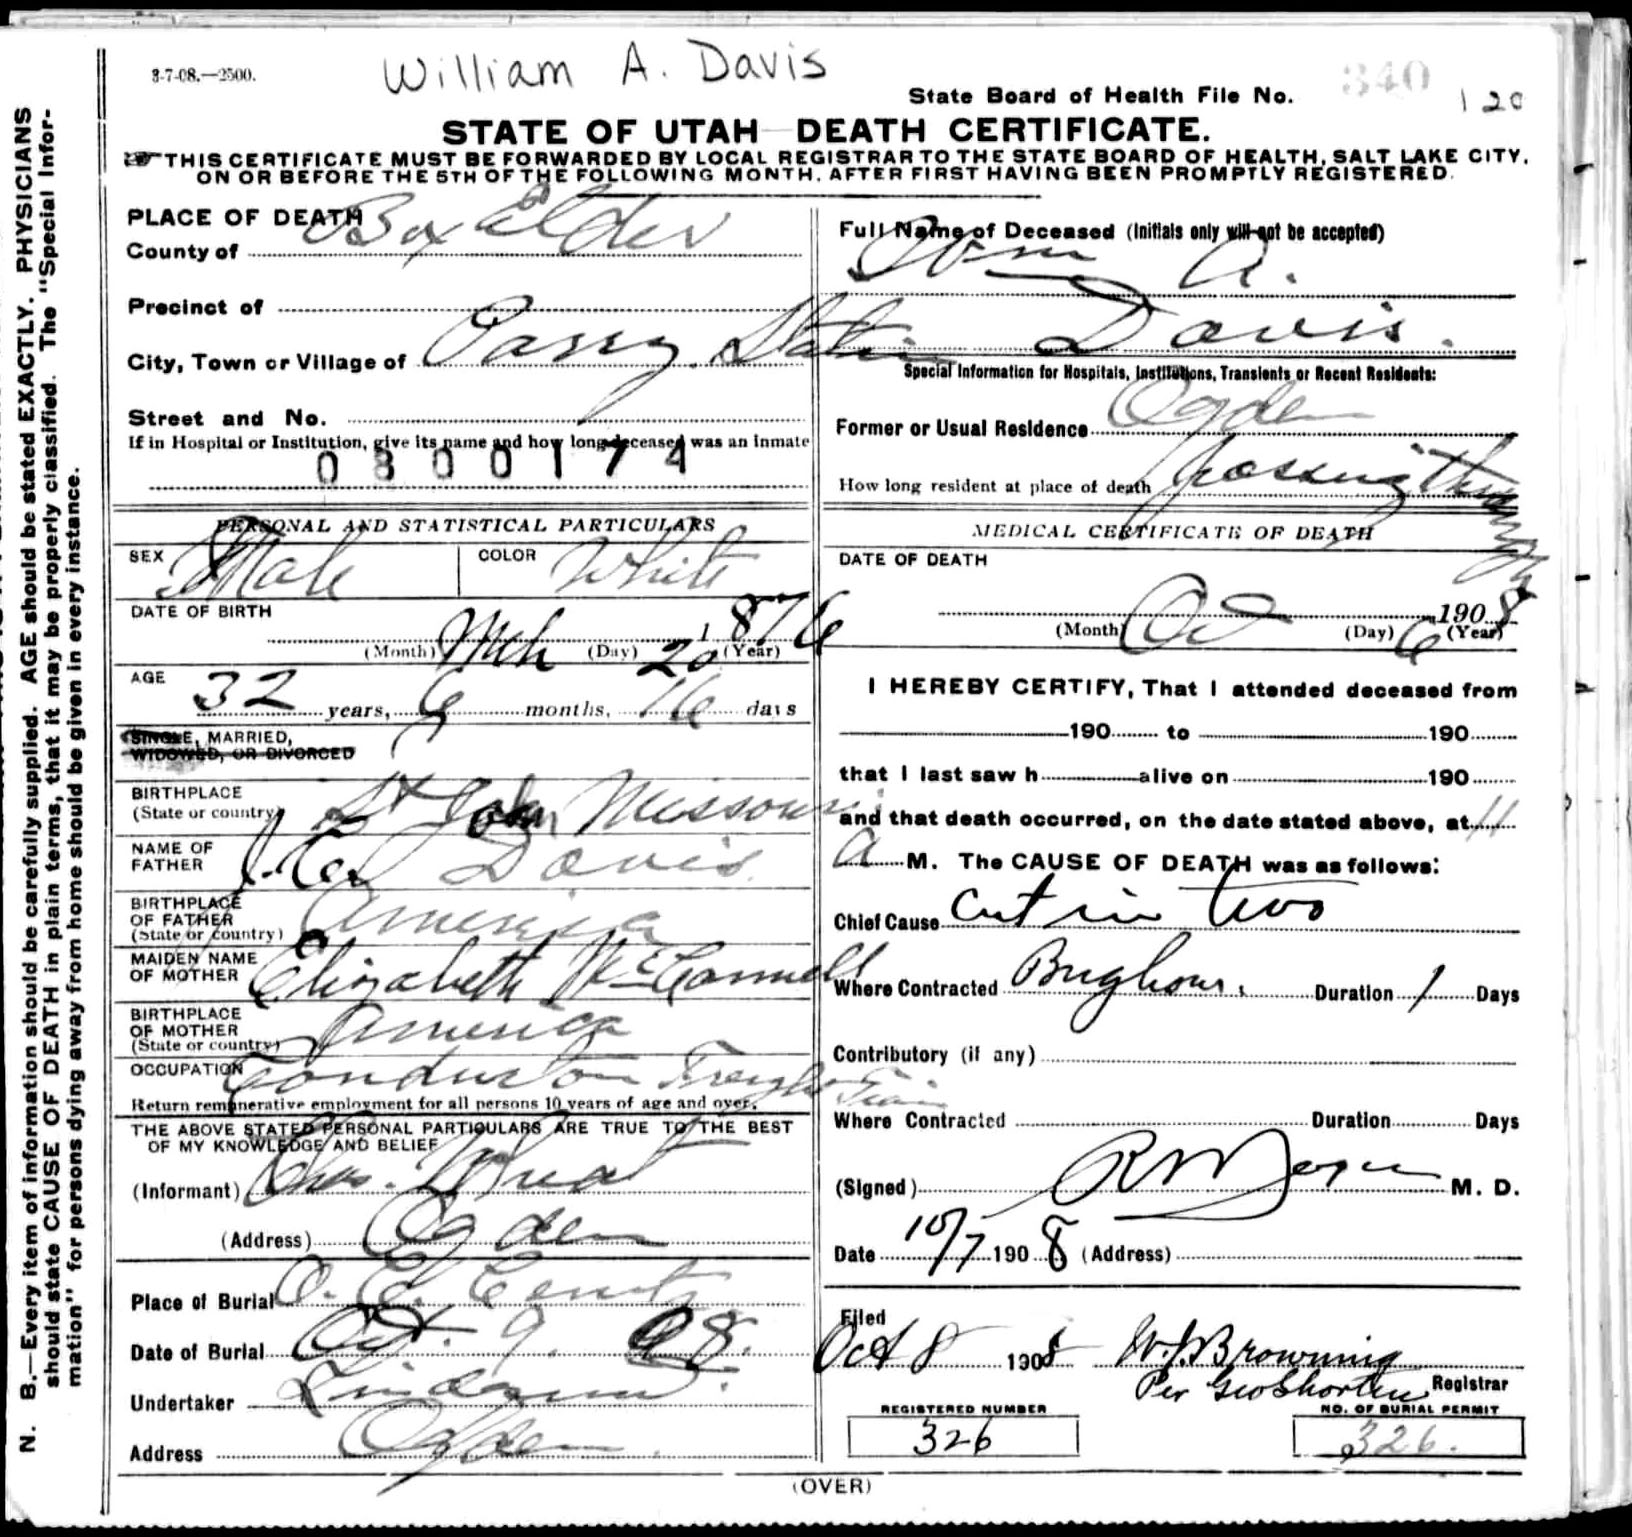 3-7-08.—2500.
William A. Davis
State Board of Health File No. 340 120
STATE OF UTAH DEATH CERTIFICATE.
THIS CERTIFICATE MUST BE FORWARDED BY LOCAL REGISTRAR TO THE STATE BOARD OF HEALTH, SALT LAKE CITY,
ON OR BEFORE THE 5TH OF THE FOLLOWING MONTH, AFTER FIRST HAVING BEEN PROMPTLY REGISTERED.
N. B.—Every item of information should be carefully supplied. AGE should be stated EXACTLY. PHYSICIANS
should state CAUSE OF DEATH in plain terms, that it may be properly classified. The "Special Infor-
mation" for persons dying away from home should be given in every instance.
PLACE OF DEATH
County of Box Elder
Precinct of
City, Town or Village of Station
Street and No.
If in Hospital or Institution, give its name and how long deceased was an inmate
0800174
PERSONAL AND STATISTICAL PARTICULARS
SEX Male COLOR White
DATE OF BIRTH
(Month) Mch (Day) 20 (Year) 1876
AGE
32 years, 6 months, 16 days
SINGLE, MARRIED,
WIDOWED, OR DIVORCED
BIRTHPLACE
(State or country) St John Missouri
NAME OF
FATHER Davis
BIRTHPLACE
OF FATHER
(State or country) America
MAIDEN NAME
OF MOTHER Elizabeth McConnell
BIRTHPLACE
OF MOTHER
(State or country) America
OCCUPATION Conductor Freight Train
Return remunerative employment for all persons 10 years of age and over.
THE ABOVE STATED PERSONAL PARTICULARS ARE TRUE TO THE BEST
OF MY KNOWLEDGE AND BELIEF
(Informant) Chas. Wheat
(Address) Ogden
Place of Burial
Date of Burial Oct. 9. 08.
Undertaker
Address Ogden
Full Name of Deceased (Initials only will not be accepted)
Wm A.
Davis.
Special Information for Hospitals, Institutions, Transients or Recent Residents:
Former or Usual Residence Ogden
How long resident at place of death passing through
MEDICAL CERTIFICATE OF DEATH
DATE OF DEATH
(Month) Oct (Day) 6 1908 (Year)
I HEREBY CERTIFY, That I attended deceased from
190 to 190
that I last saw h alive on 190
and that death occurred, on the date stated above, at 11
A M. The CAUSE OF DEATH was as follows:
Chief Cause Cut in two
Where Contracted Brigham. Duration 1 Days
Contributory (if any)
Where Contracted Duration Days
(Signed) M. D.
Date 10/7 1908 (Address)
Filed
Oct 8 1908 W.J. Browning
Per Geo Shorten Registrar
REGISTERED NUMBER
326
NO. OF BURIAL PERMIT
326.
(OVER)